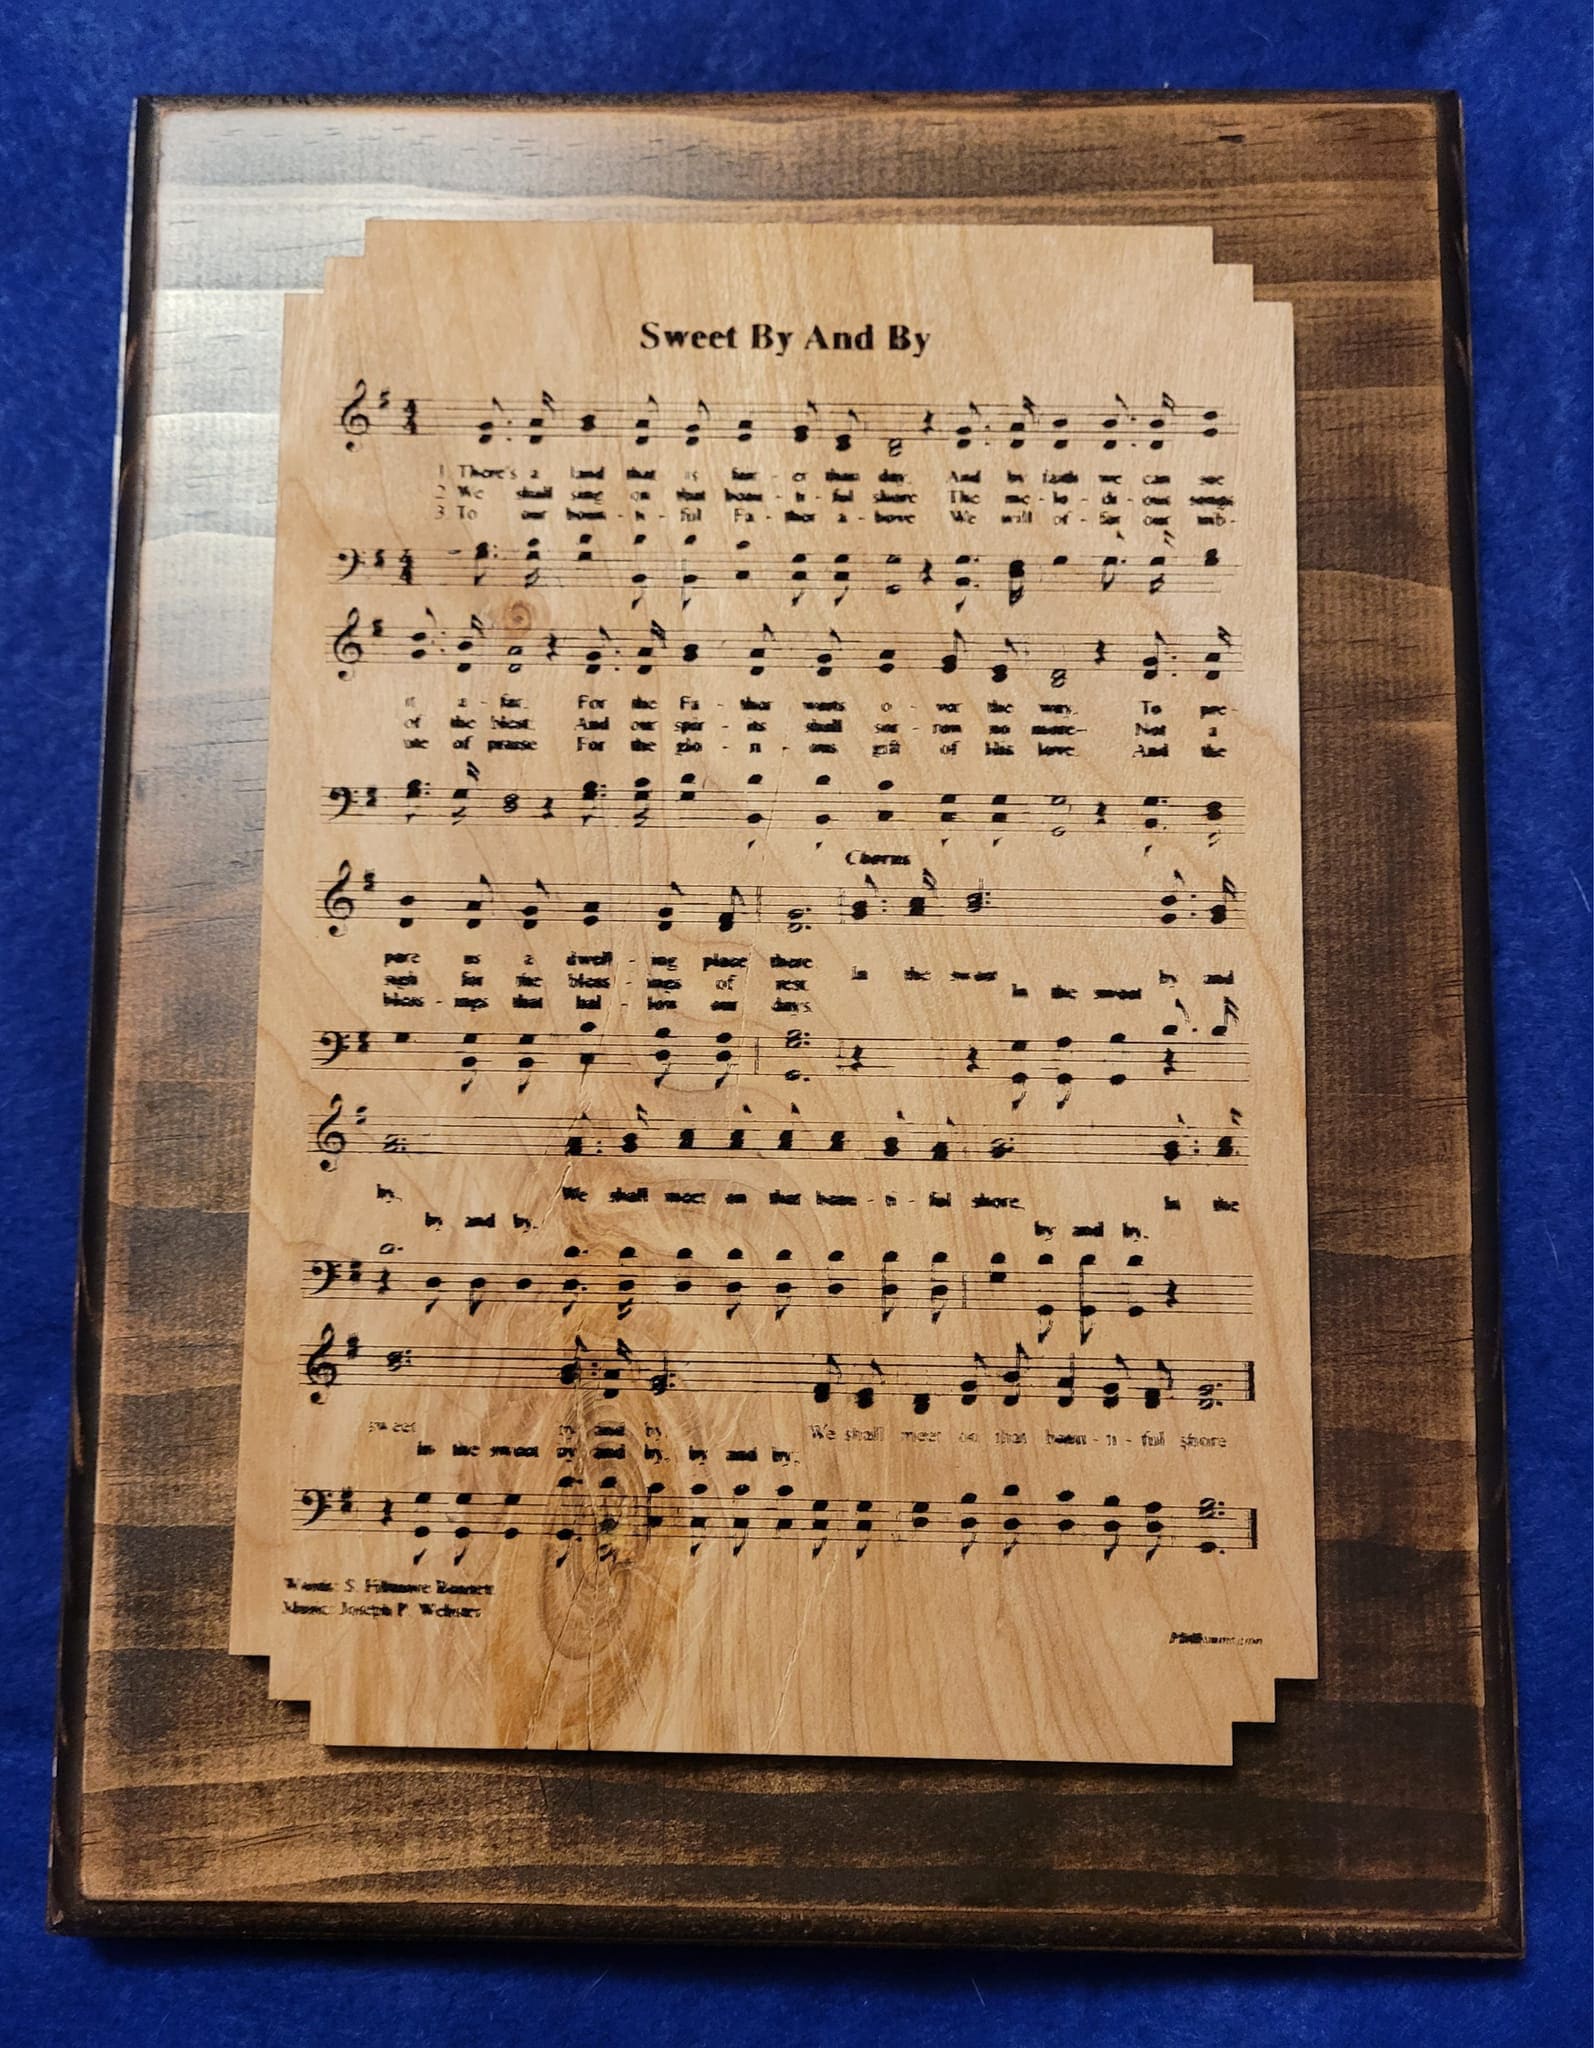 Sweet By And By
1. There's a land that is fair - er than day. And by faith we can see
2. We shall sing on that beau - ti - ful shore The me - lo - di - ous songs
3. To our boun - ti - ful Fa - ther a - bove We will of - fer our trib -
it a - far. For the Fa - ther waits o - ver the way. To pre -
of the blest. And our spir - its shall sor - row no more - Not a
ute of praise For the glo - ri - ous gift of His love. And the
Chorus
pare us a dwell - ing place there
sigh for the bless - ings of rest.
bless - ings that hal - low our days.
In the sweet by and
In the sweet
by. We shall meet on that beau - ti - ful shore. In the
by and by. by and by.
sweet by and by. We shall meet on that beau - ti - ful shore
In the sweet by and by, by and by.
Words: S. Fillmore Bennett
Music: Joseph P. Webster